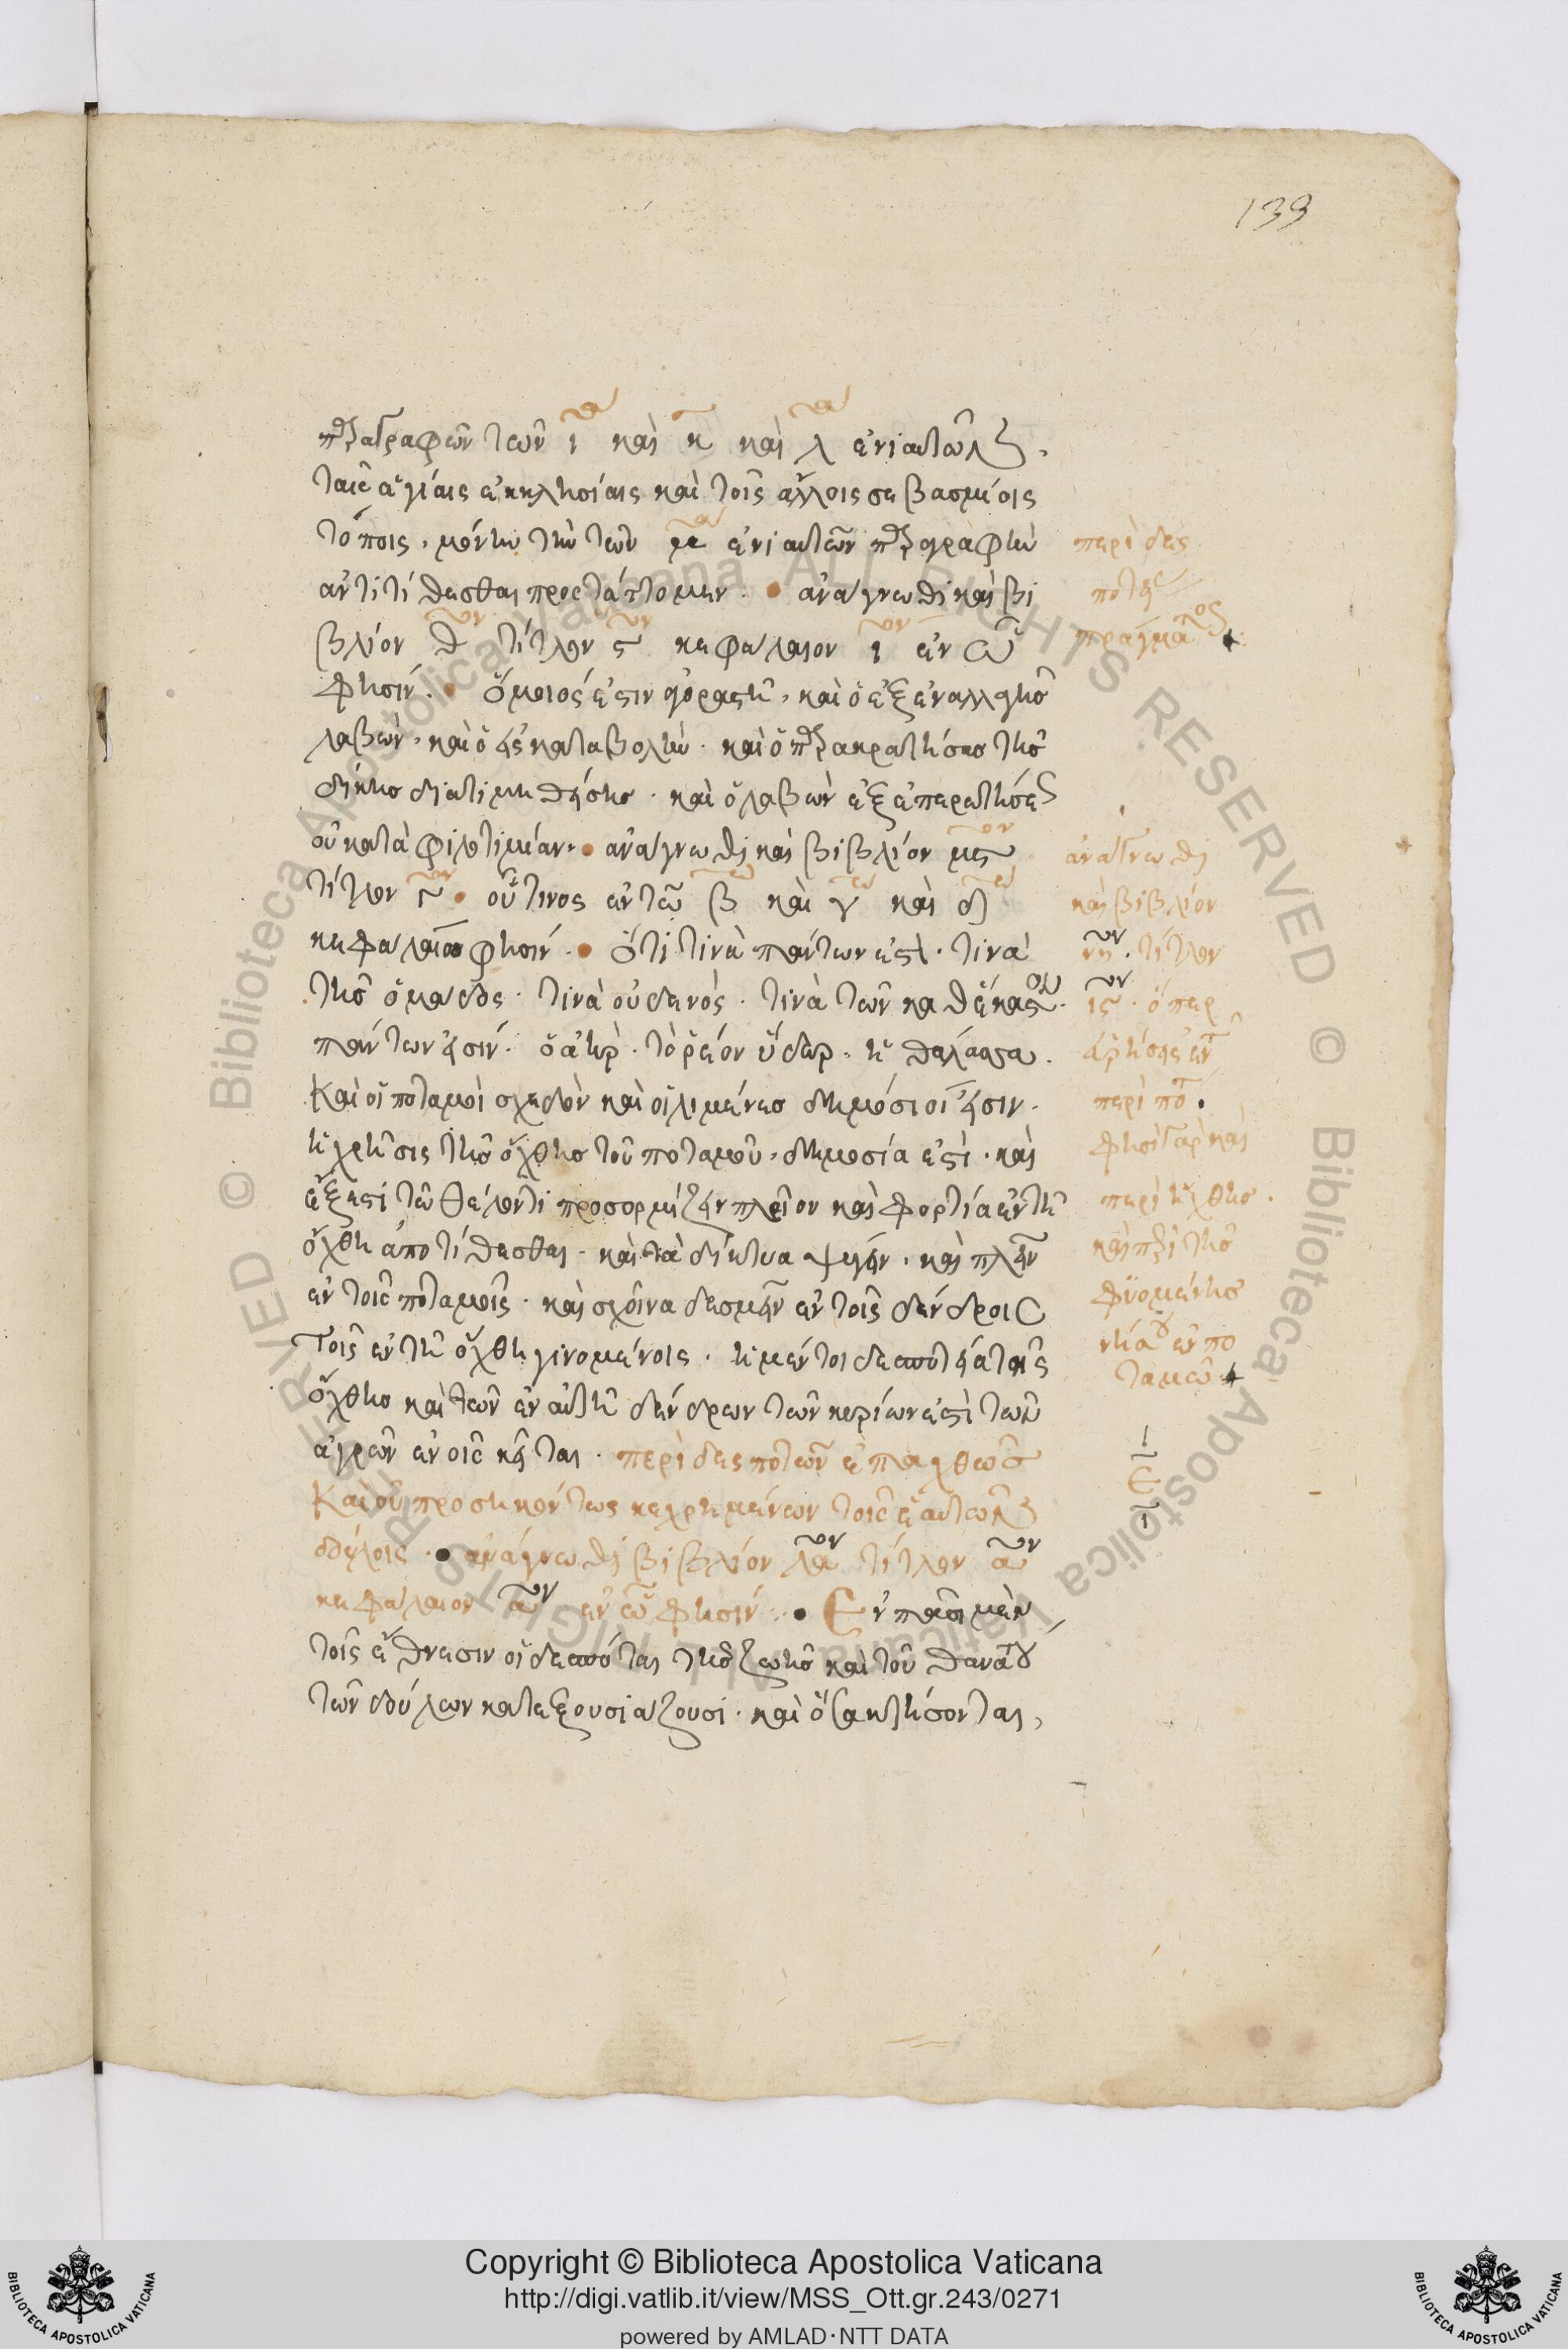 139
παραγραφῶν τῶν ι καὶ κ καὶ λ ἐνιαυτῶν
ταῖς ἁγίαις ἐκκλησίαις καὶ τοῖς ἄλλοις σεβασμίοις
τόποις, μόνην τὴν τῶν μ ἐνιαυτῶν παραγραφὴν
ἀντιτίθεσθαι προστάττομεν. ἀνάγνωθι καὶ βι
βλίον θ τίτλον ϛ κεφάλαιον ι ἐν ᾧ
φησίν. ὅμοιός ἐστιν ἀγοραστῇ, καὶ ὁ ἐξ ἐναλλαγῆς
λαβών, καὶ ὁ εἰς καταβολήν. καὶ ὁ παρακρατήσας τῆς
δίκης διατιμηθείσης. καὶ ὁ λαβὼν ἐξ ἐπερωτήσεως
οὐ κατὰ φιλοτιμίαν. ἀνάγνωθι καὶ βιβλίον μϛ
τίτλον γ. οὗτινος ἐν τῷ β καὶ γ καὶ δ
κεφαλαίῳ φησίν. ὅτι τινὰ πάντων ἐστί. τινὰ
τῆς ὁμάδος. τινὰ οὐδενός. τινὰ τῶν καθέκαστον.
πάντων εἰσίν. ὁ ἀήρ. τὸ ῥέον ὕδωρ. ἡ θάλασσα.
Καὶ οἱ ποταμοὶ σχεδὸν καὶ οἱ λιμένες δημόσιοι εἰσιν.
ἡ χρῆσις τῆς ὄχθης τοῦ ποταμοῦ, δημοσία ἐστί. καὶ
ἔξεστι τῷ θέλοντι προσορμίζειν πλοῖον καὶ φορτία ἐν τῇ
ὄχθῃ ἀποτίθεσθαι. καὶ τὰ δίκτυα ψύγειν. καὶ πλεῖν
ἐν τοῖς ποταμοῖς. καὶ σχοῖνα δεσμεῖν ἐν τοῖς δένδροις
τοῖς ἐν τῇ ὄχθῃ γινομένοις. ἡ μέντοι δεσποτεία τῆς
ὄχθης καὶ τῶν ἐν αὐτῇ δένδρων τῶν κυρίων ἐστὶ τῶν
ἀγρῶν ἐν οἷς κεῖται. περὶ δεσποτῶν ἐπαχθῶς
Καὶ οὐ προσηκόντως κεχρημένων τοῖς ἑαυτῶν
δούλοις. ἀνάγνωθι βιβλίον λα τίτλον α
κεφάλαιον α ἐν ᾧ φησίν. Ἐν πᾶσι μὲν
τοῖς ἔθνεσιν οἱ δεσπόται τῆς ζωῆς καὶ τοῦ θανάτου
τῶν δούλων κατεξουσιάζουσι. καὶ ὅσα κτήσονται,
περὶ δες
ποτείας
πράγματος
ἀνάγνωθι
καὶ βιβλίον
νη. τίτλον
ιϛ. ὅπερ
εἴρήσεις ἐν
περὶ πο.
φησὶ γὰρ καὶ
περὶ ὄχθης.
καὶ περὶ τῆς
φυομένης
νήσου ἐν πο
ταμῷ
ε
Copyright © Biblioteca Apostolica Vaticana
http://digi.vatlib.it/view/MSS_Ott.gr.243/0271
powered by AMLAD·NTT DATA